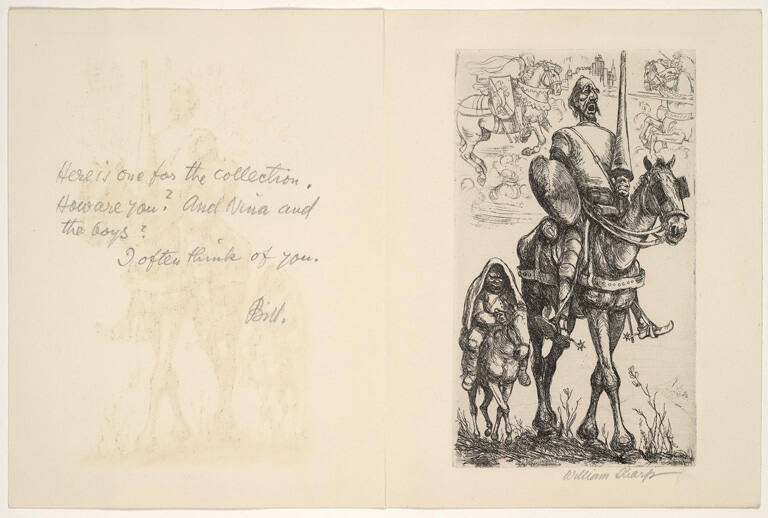 Here is one for the collection.
How are you? And Nina and
the boys?
I often think of you.
Bill.
William Sharp